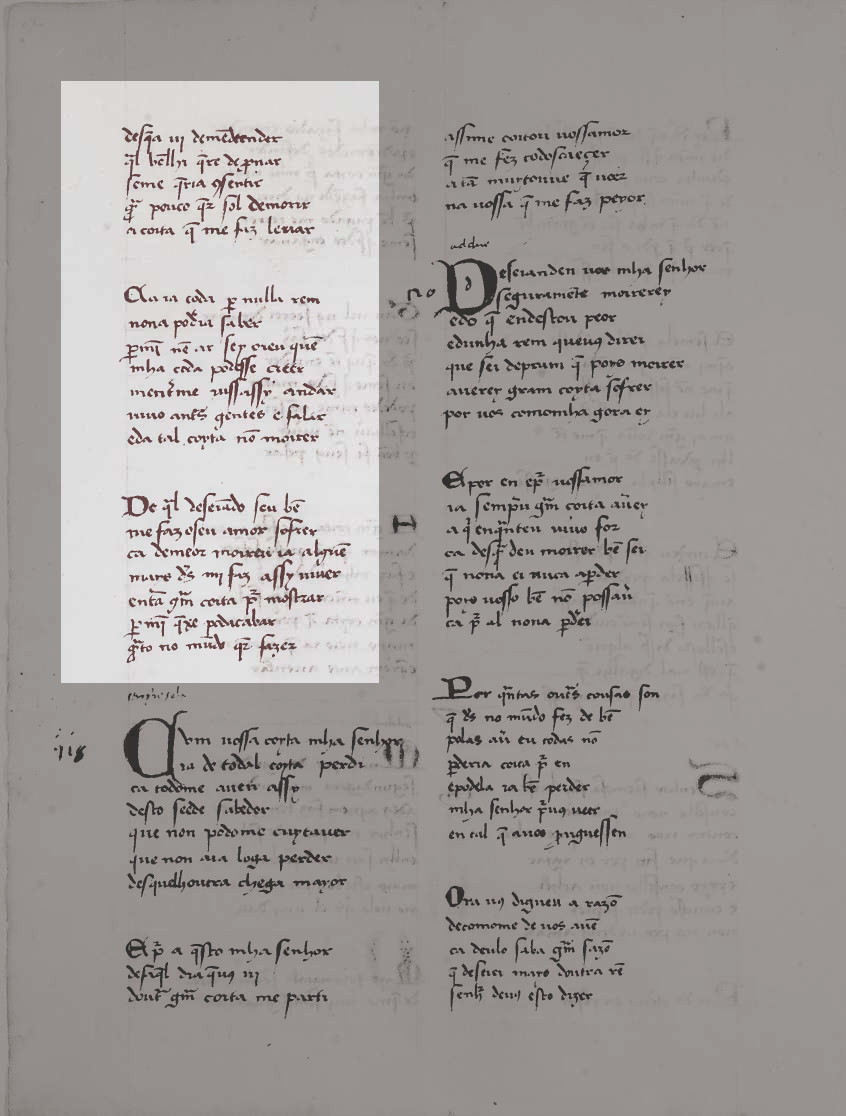 desq̃a vj demẽdeender
q̃l bẽlhi q̃re de p̃nar
seme q̃ria ꝯsentir
pouco q̃r sol demorir
a coita q̃ me faz levar
Ca ia coda p nulla rem
nona podia saber
pmĩ nẽ ar sey o ieu quẽ
mha coda podesse creer
me vyssassy andar
vivo antr̃ gentes e falir
eda tal coyta nõ moirer
De q̃l deseiado seu bẽ
me faz oseu amor sofrer
ca demeor moireu ia alguẽ
mais d̃s mi faz assy viver
entã gm̃ coita p̃ mostrar
pmĩ q̃xe podacabar
q̃to no mũdo q̃r fazer
Com vossa coyta mha senhor
ia de todal coyta perdi
ca todome aven assy
desto seede sabedor
que non podome cuytaver
que non aia loga perder
desquelhoutra chega mayor
E p̃ a q̃sto mha senhor
desaq̃l dia q̃ vꝯ vj
dout gm̃ coita me parti
assime coitou vossamor
q̃ me fez todoscaeçer
a tã muitouve q̃ veer
na vossa q̃ me faz peyor
adduc
Deseianden vos mha senhor
seguramẽte moirerey
edo q̃ endestou peor
edunha rem quevꝯ direi
que sei deprum q̃ poys moirer
averey gram coyta sofrer
por vos comomha gora ey
E por en ep̃ vossamor
ia sempr̃u gm̃ coita aver
a q̃ enq̃nteu vivo for
ca des q̃ deu moirer bẽ sei
q̃ nona ei nũca apder
poys vosso bẽ nõ possavr̃
ca p̃ al nona pder
Por q̃ntas outs̃ cousas son
q̃ d̃s no mũdo fez de bẽ
polas avr̃ eu todas nõ
pderia coita p̃ en
epodela ia bẽ perder
mha senhor p̃ vꝯ veer
en tal q̃ avos prugessen
Ora vꝯ digueu a razõ
decomome de vos avẽ
ca deulo saba gm̃ sazõ
q̃ deseiei mays doutra rẽ
senh̃ devꝯ esto dizer